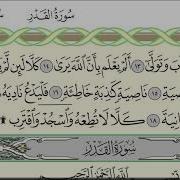 سُورَةُ الْقَدْرِ
بَ وَتَوَلَّىٰ ١٣ أَلَمْ يَعْلَم بِأَنَّ ٱللَّهَ يَرَىٰ ١٤ كَلَّا لَئِن لَّمْ
نَاصِيَةٍ كَٰذِبَةٍ خَاطِئَةٍ ١٦ فَلْيَدْعُ نَادِيَهُۥ
١٨ كَلَّا لَا تُطِعْهُ وَٱسْجُدْ وَٱقْتَرِب
سُورَةُ الْقَدْرِ